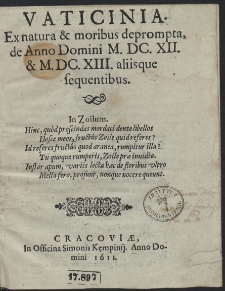 VATICINIA
Ex natura & moribus deprompta,
de Anno Domini M. DC. XII.
& M. DC. XIII. aliisque
sequentibus.
In Zoilum.
Hinc, quid proscindas mordaci dente libellos
Hosce meos, fructus Zoile quid referes?
Id referes fructus quod aranea, rumpitur illa:
Tu quoque rumperis, Zoile præ invidia.
Instar apum, variis lecta hæc de floribus ultro
Mella fero, prosint, nonque nocere queunt.
CRACOVIÆ,
In Officina Simonis Kempinij. Anno Do-
mini 1611.
17.897